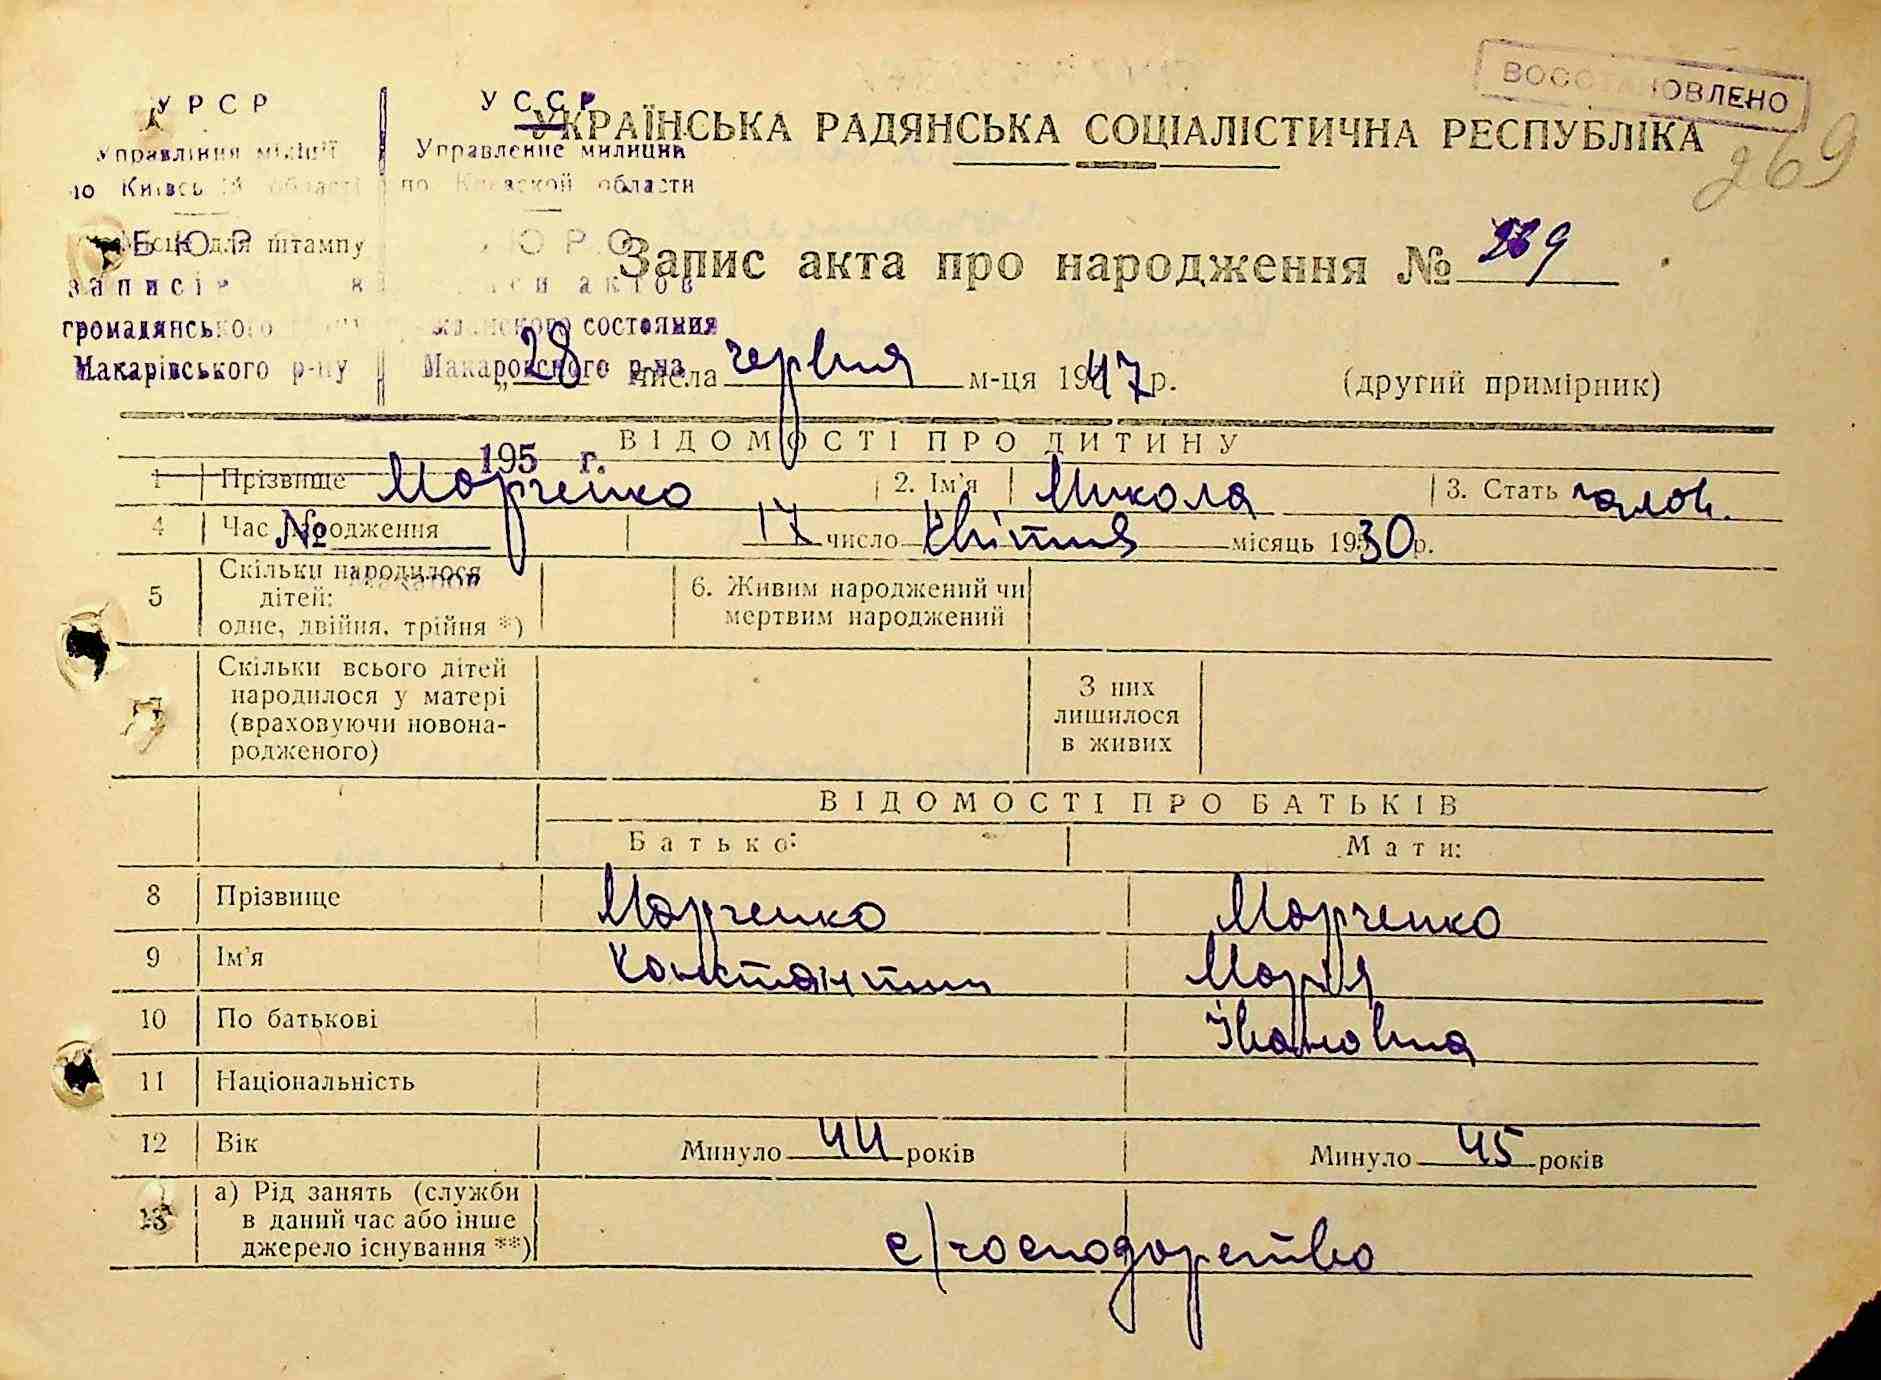 ВОССТАНОВЛЕНО
УРСР УССР
УКРАЇНСЬКА РАДЯНСЬКА СОЦІАЛІСТИЧНА РЕСПУБЛІКА
269
Управління міліції Управление милиции
по Київській області по Киевской области
Місце для штампу
БЮРО БЮРО
Запис акта про народження № 269
записів актов
громадянського состояния
Макарівського р-ну Макаровского р-на
„28" числа червня м-ця 1947 р. (другий примірник)
ВІДОМОСТІ ПРО ДИТИНУ
195 г.
1 Прізвище Марченко 2. Ім'я Микола 3. Стать чолов.
4 Час народження 17 число квітня місяць 1930 р.
№
Макаров
5 Скільки народилося дітей: одне, двійня, трійня *) 6. Живим народжений чи мертвим народжений
7 Скільки всього дітей народилося у матері (враховуючи новонародженого) З них лишилося в живих
ВІДОМОСТІ ПРО БАТЬКІВ
Батько: Мати:
8 Прізвище Марченко Марченко
9 Ім'я Константин Марія
10 По батькові Івановна
11 Національність
12 Вік Минуло 44 років Минуло 45 років
13 а) Рід занять (служби в даний час або інше джерело існування **) с/господарство